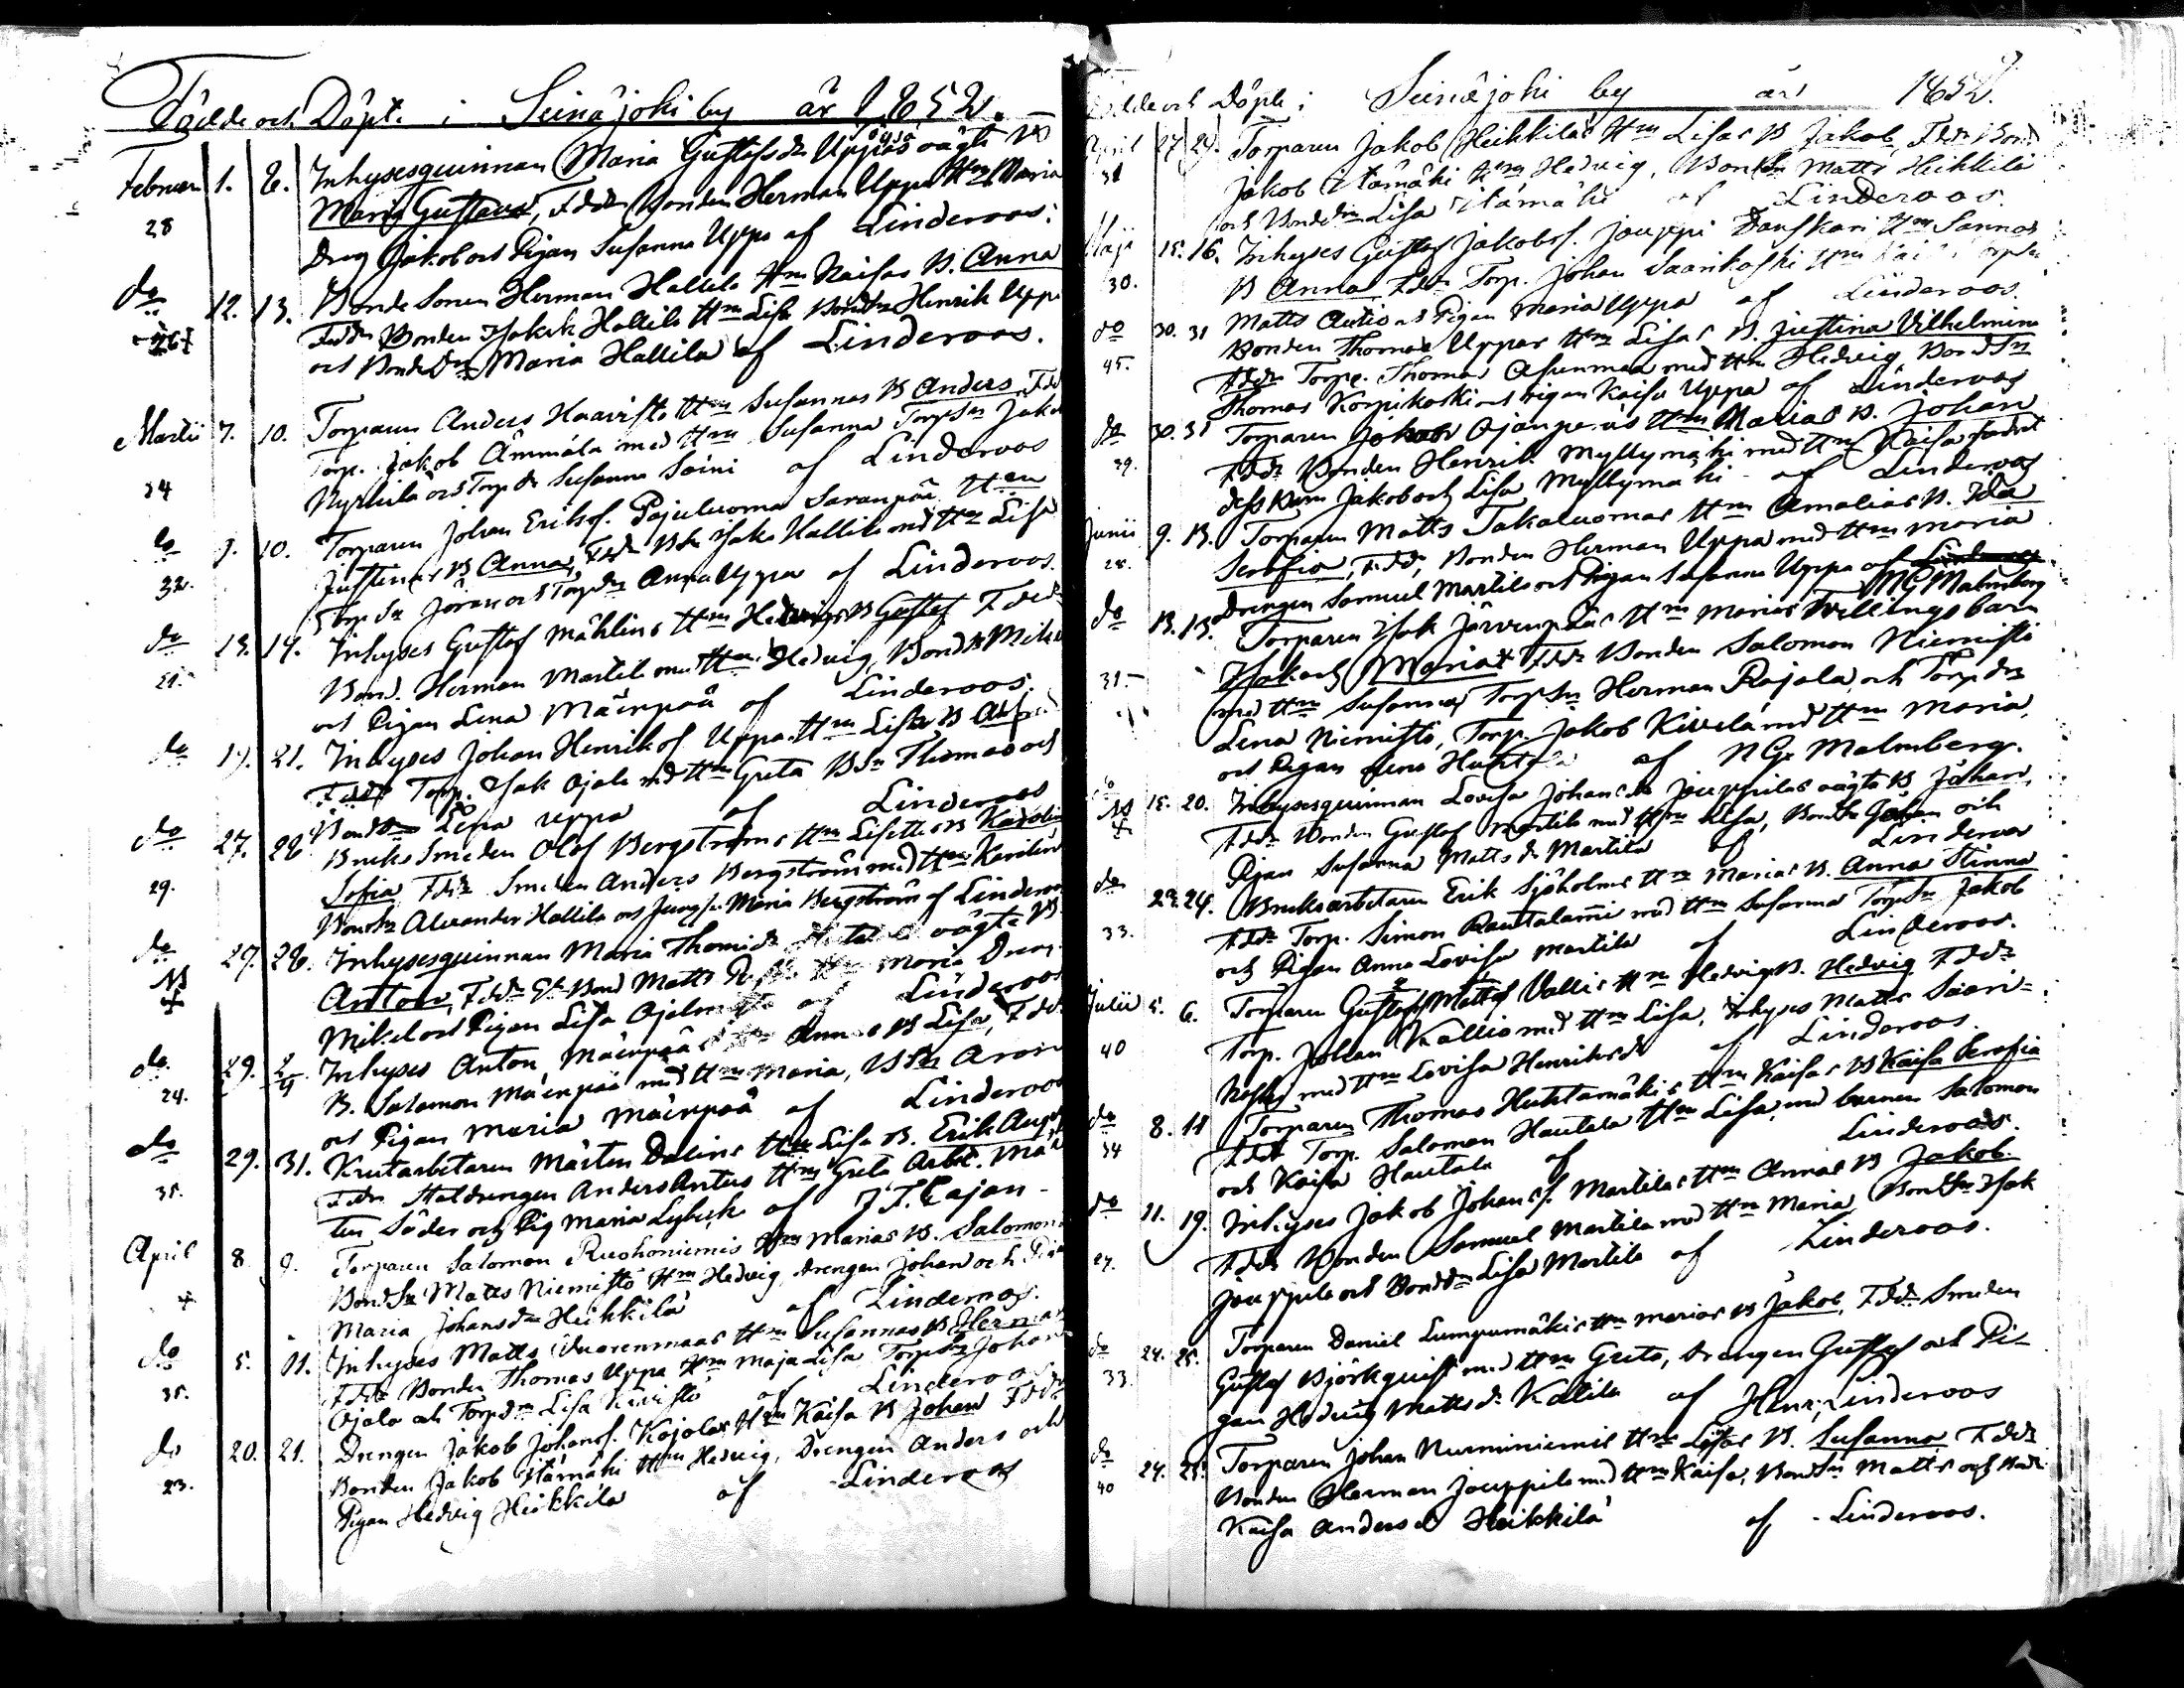 Födde och Döpte i Seinäjoki by år 1852.
Februari 1. 8. Inhysesquinnan Maria Gustafsdr Uppas oägta B
Maria Gustava, Fddr Bonden Herman Uppa Hm Maria
28
Dreng Jakob och Pigan Susanna Uppa af Linderoos.
do 12. 13. Bonde Sonen Herman Hallila Hm Kaisas B. Anna
26
Fddr Bonden Isak Hallila Hm Lisa BondSn Henrik Uppa
och BondeDr Maria Hallila af Linderoos.
Martii 7. 10. Torparen Anders Haavisto Hm Susannas B Anders Fdd
Torp. Jakob Ämmälä med Hm Susanna TorpSn Jakob
34
och Torp dr Susanna Soini af Linderoos
do 9. 10. Torparen Johan Eriksf. Pajuluoma Saranpää Hm
Justinas B Anna, Fddr Isak Hallila med Hm Lisa
32.
TorpSn och Torpdr Anna Uppa af Linderoos.
do 13. 14. Inhyses Gustaf Mählins Hm Hedvigs B Gustaf Fddr
Bond. Herman Martila med Hm Hedvig, BondSn Mikel
21.
och Pigan Lena Mäenpää af Linderoos.
do 19. 21. Inhyses Johan Henriksf Uppa Hm Lisas B
Fddr Torp. Isak Ojala med Hm Greta BSn Thomas och
Bonddr Lena Uppa af Linderoos
do 27. 28 Bruks Smeden Olof Bergströms Hm Lisettes B Karolina
29.
Sofia Fddr Smeden Anders Bergström med Hm Karolina
BondSn Alexander Hallila och Jungfr Maria Bergström af Linderoos
do 27. 28. Inhysesquinnan Maria Thomædr oägta B
Anton, Fddr Bond Matts Hm Maria Dreng
Mikel och Pigan Lisa af Linderoos
do 29. 2/4 Inhyses Anton Mäenpääs Hm Annas B Lisa, Fddr
24.
B. Salomon Mäenpää med Hm Maria, BSn Aron
och Pigan Maria Mäenpää af Linderoos
do 29. 31. Krutarbetaren Mårten Dalins Hm Lisas B. Erik August
35.
Fddr Staldrengen Anders Antus Hm Greta Arbt. Mår
ten Söder och Pig Maria Lybeck af J. T. Cajan
April 8 9. Torparen Salomon Ruohoniemis Hm Marias B. Salomon
BondSn Matts Niemistö Hm Hedvig, Drengen Johan och Pigan
Maria Johansdr Heikkilä af Linderoos.
do 5. 11. Inhyses Matts Vuorenmaas Hm Susannas B Herman
Fddr Bonden Thomas Uppa Hm Maja Lisa TorpSn Johan
35.
Ojala och Torpdr Lisa af Linderoos
do 20. 21. Drengen Jakob Johansf. Kojolas Hm Kaisa B Johan Fddr
Bonden Jakob Itämäki Hm Hedvig, Drengen Anders och
23.
Pigan Hedvig Heikkilä af Linderoos
Födde och Döpte i Seinäjoki by år 1852.
April 27 29. Torparen Jakob Heikkiläs Hm Lisas B Jakob, Fddr Bond
Jakob Itämäki Hm Hedvig, BondSn Matts Heikkilä
och Bonddr Lisa Itämäki af Linderoos.
Maji 15. 16. Inhyses Gustaf Jakobsf. Jouppi Hm Sannas
30.
B Anna Fddr Torp. Johan Saarikoski Hm TorpSn
Matts Autio och Pigan Maria Uppa af Linderoos.
do 30. 31 Bonden Thomas Uppas Hm Lisas B. Justina Vilhelmina
45.
Fddr Torp. Thomas Asunmaa med Hm Hedvig BondSn
Thomas Korpikoski och Pigan Kaisa Uppa af Linderoos
do 30. 31 Torparen Jakob Ojanperäs Hm Marias B. Johan
29.
Fddr Bonden Henrik Myllymäki med Hm Kaisa samt
dess barn Jakob och Lisa Myllymäki af Linderoos
Junii 9. 13. Torparen Matts Jakaluomas Hm Amalias B. Ida
28.
Serafia, Fddr, Bonden Herman Uppa med Hm Maria
Drengen Samuel Martila och Pigan Susanna Uppa af Linderoos
NG Malmberg
do 13. 13. Torparen Isak Järvenpääs Hm Marias Tvillingsbarn
Isak och Maria Fddr Bonden Salomon Niemistö
31.
med Hm Susanna, TorpSn Herman Rajala, och Torp dr
Lena Niemistö, Torp. Jakob Kivelä med Hm Maria,
och Pigan Lena af NG. Malmberg.
15. 20. Inhysesquinnan Lovisa Johansdr Jouppilas oägta B Johan,
Fddr Bonden Gustaf Martila med Hm Lisa, BondSn Johan och
Pigan Susanna Mattsdr Martila af Linderoos
do 22. 24. Bruksarbetaren Erik Sjöholms Hm Marias B. Anna Stinna
Fddr Torp. Simon Rautalammi med Hm Susanna TorpSn Jakob
33.
och Pigan Anna Lovisa Martila af Linderoos.
Julii 5. 6. Torparen Gustaf Mattsf Vallis Hm Hedvigs B. Hedvig Fddr
Torp. Johan Kallio med Hm Lisa, Inhyses Matts Saari-
40
koski med Hm Lovisa Henriksdr af Linderoos.
do 8. 11 Torparen Thomas Huhtamäkis Hm Kaisas B Kaisa Serafia
34
Fddr Torp. Salomon Hautala Hm Lisa, med barnen Salomon
och Kaisa Hautala af Linderoos.
do 11. 19. Inhyses Jakob Johansf. Martilas Hm Annas B Jakob.
27.
Fddr Bonden Samuel Martila med Hm Maria BondSn Isak
Jouppila och Bonddr Lisa Martila af Linderoos.
do 24. 25. Torparen Daniel Lumpumäkis Hm Marias B Jakob, Fddr Smeden
33.
Gustaf Björkquist med Hm Greta, Drengen Gustaf och Pi-
gan Hedvig Mattsdr Kallila af Henr. Linderoos
do 24. 25. Torparen Johan Nurminiemis Hm Lisas B. Susanna Fddr
40
Bonden Herman Jouppila med Hm Kaisa, BondSn Matts och
Kaisa Andersdr Heikkilä af Linderoos.